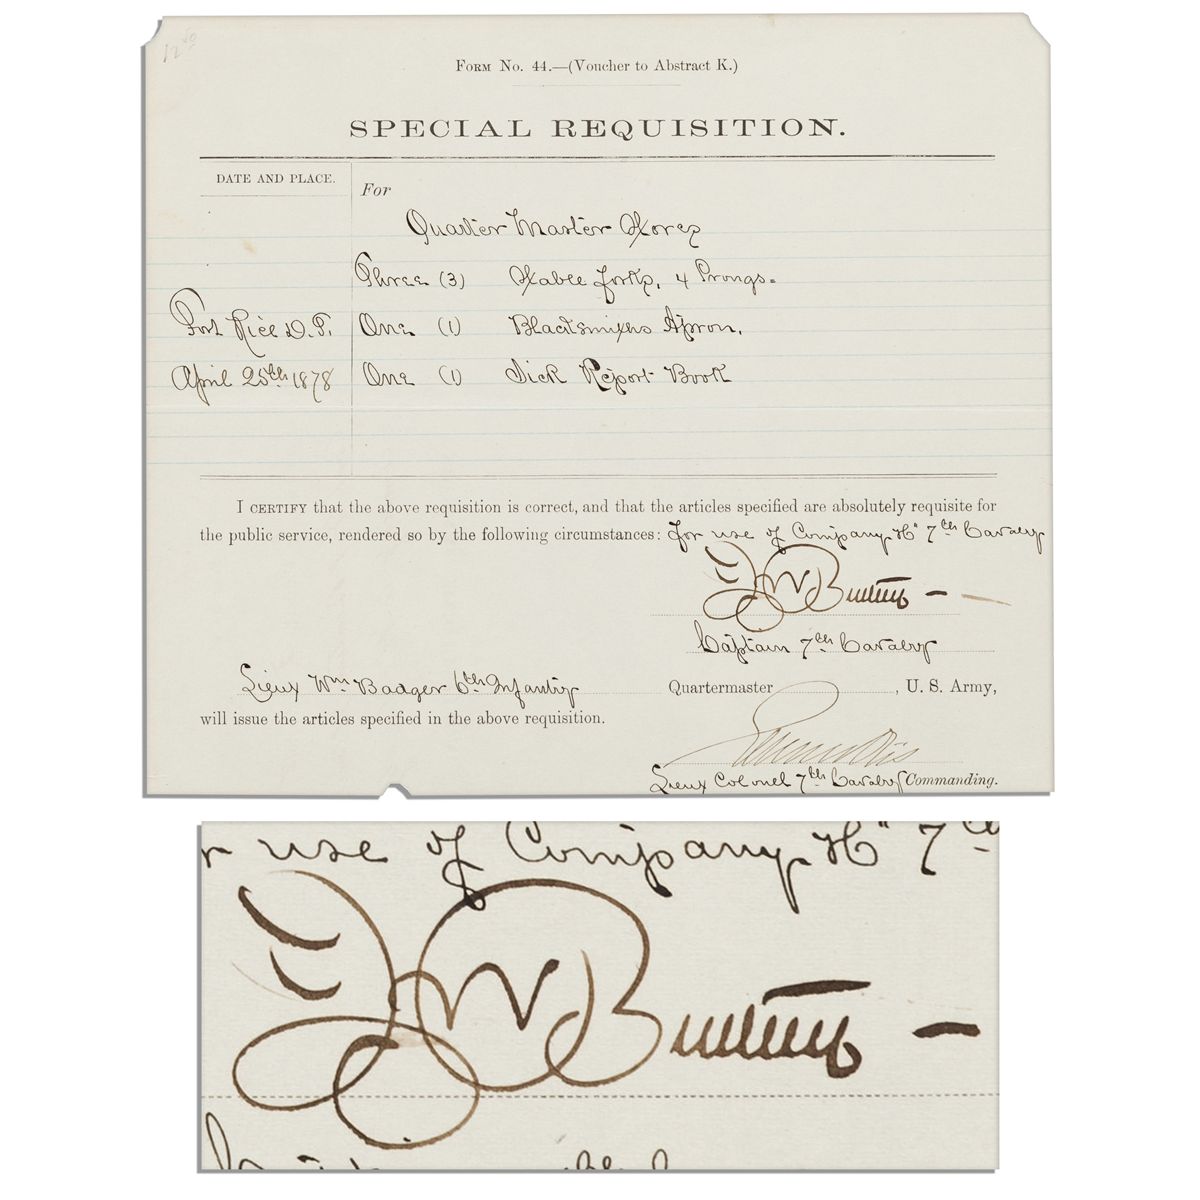 12 50
Form No. 44.—(Voucher to Abstract K.)
SPECIAL REQUISITION.
DATE AND PLACE.
For
Quarter Master Stores
Three (3) Table forks, 4 Prongs.
Fort Rice D. T. One (1) Blacksmiths Apron.
April 25th 1878 One (1) Sick Report Book
I CERTIFY that the above requisition is correct, and that the articles specified are absolutely requisite for
the public service, rendered so by the following circumstances: for use of Company "H" 7th Cavalry
FW Benteen
Captain 7th Cavalry
Lieut Wm Badger 6th Infantry Quartermaster , U. S. Army,
will issue the articles specified in the above requisition.
Lieut Colonel 7th Cavalry Commanding.
r use of Company "H" 7th
FW Benteen